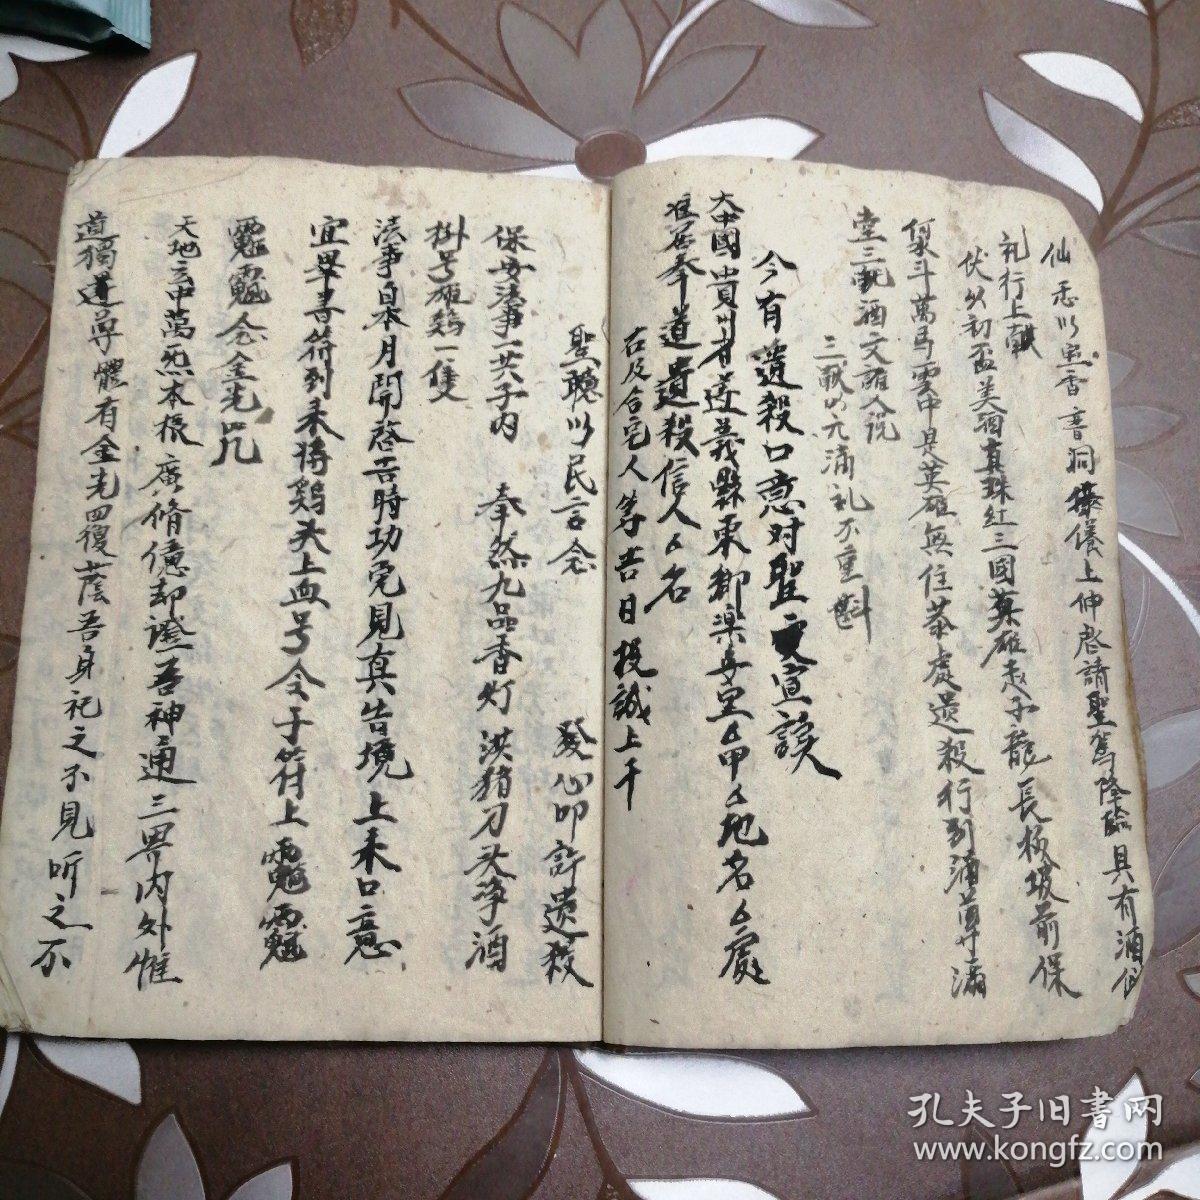 仙 悉以 香 音洞 儀上伸啓請聖駕降臨具有酒
礼行上献
伏以初盃美酒真珠紅三國英雄赵子龍長板坡前保
斗萬马雲中是英雄無住恭處遣殺行到滴尊斗滿
堂三献酒文諳人說
三献以元滴礼不重斟
今有遣殺口意对聖 宣讀
大中國貴州省遵義縣東鄉樂安里厶甲厶地名厶處
居奉道遣殺信人厶名
右及合宅人等吉日投誠上千
聖聰以民言念 發心叩許遣殺
保安法事一共于内 奉然九品香灯 洪猪刀头净酒
掛号雄鷄一隻
法事自本月開啓吉時功 見真皆境上来口意
宜畢書符到来将鷄头上血号令于符上
念金光咒
天地玄中萬炁本根 廣脩億却證吾神通三界内外惟
道獨遵尊體有金光四復蔭吾身祀之不見听之不
孔夫子旧书网
www.kongfz.com